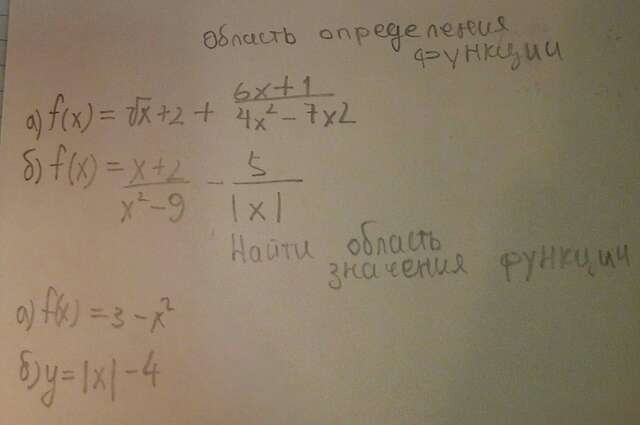 Область определения
функции
а) f(x) = √x+2 + (6x+1)/(4x² - 7x2)
б) f(x) = (x+2)/(x²-9) - 5/|x|
Найти область
значения функции
а) f(x) = 3 - x²
б) y = |x| - 4